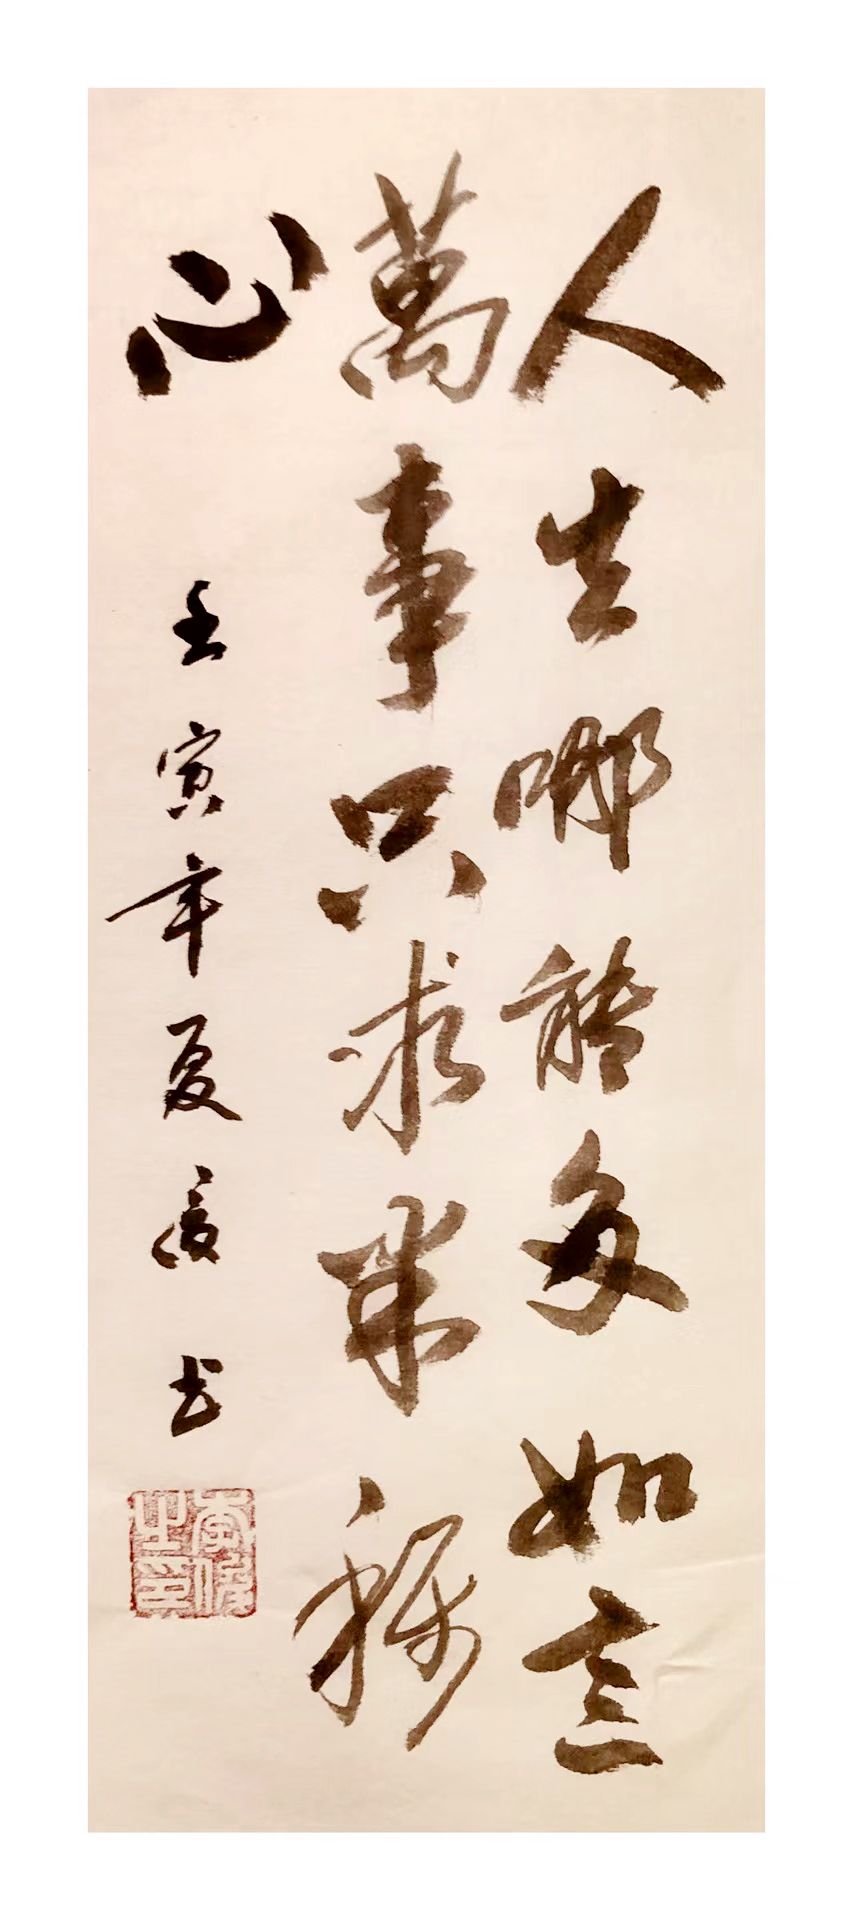 人生哪能多如意
萬事只求半称
心
壬寅年夏
书
之印